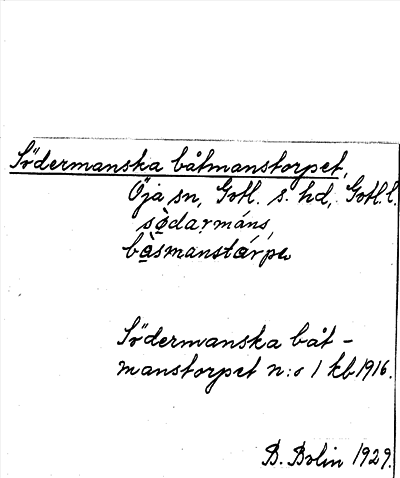 Södermanska båtmanstorpet,
Öja sn, Gotl. s. hd, Gotl. l.
sö̀darmáns,
bå̀smanstárpu
Södermanska båt-
manstorpet n:o 1 kb 1916.
B. Bolin 1929.